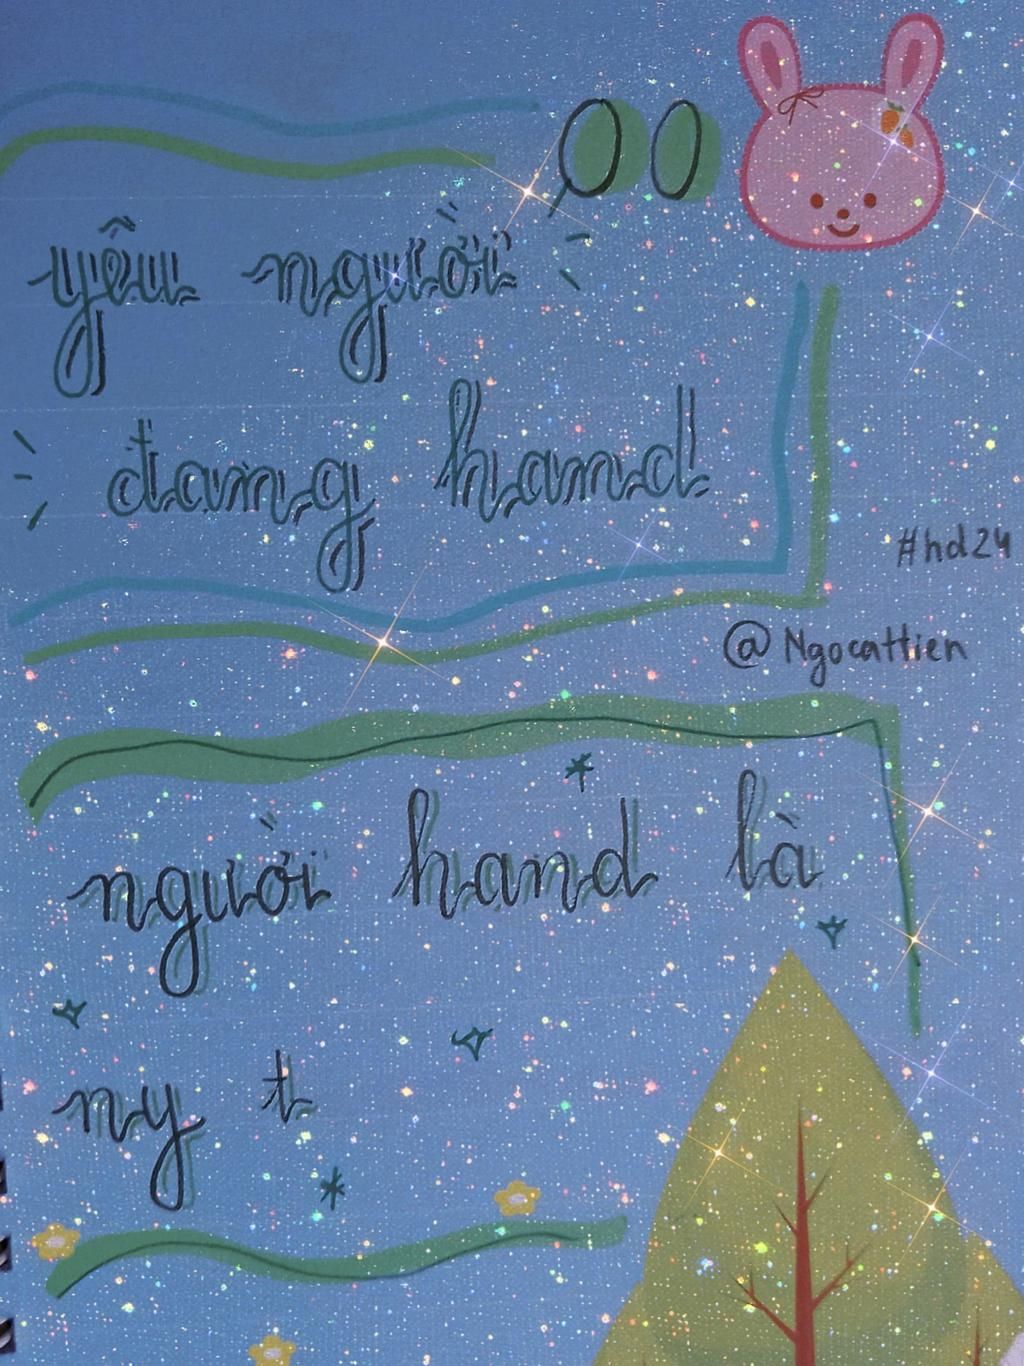 yêu người
đang hand
#hd24
@Ngocattien
người hand là
ny t